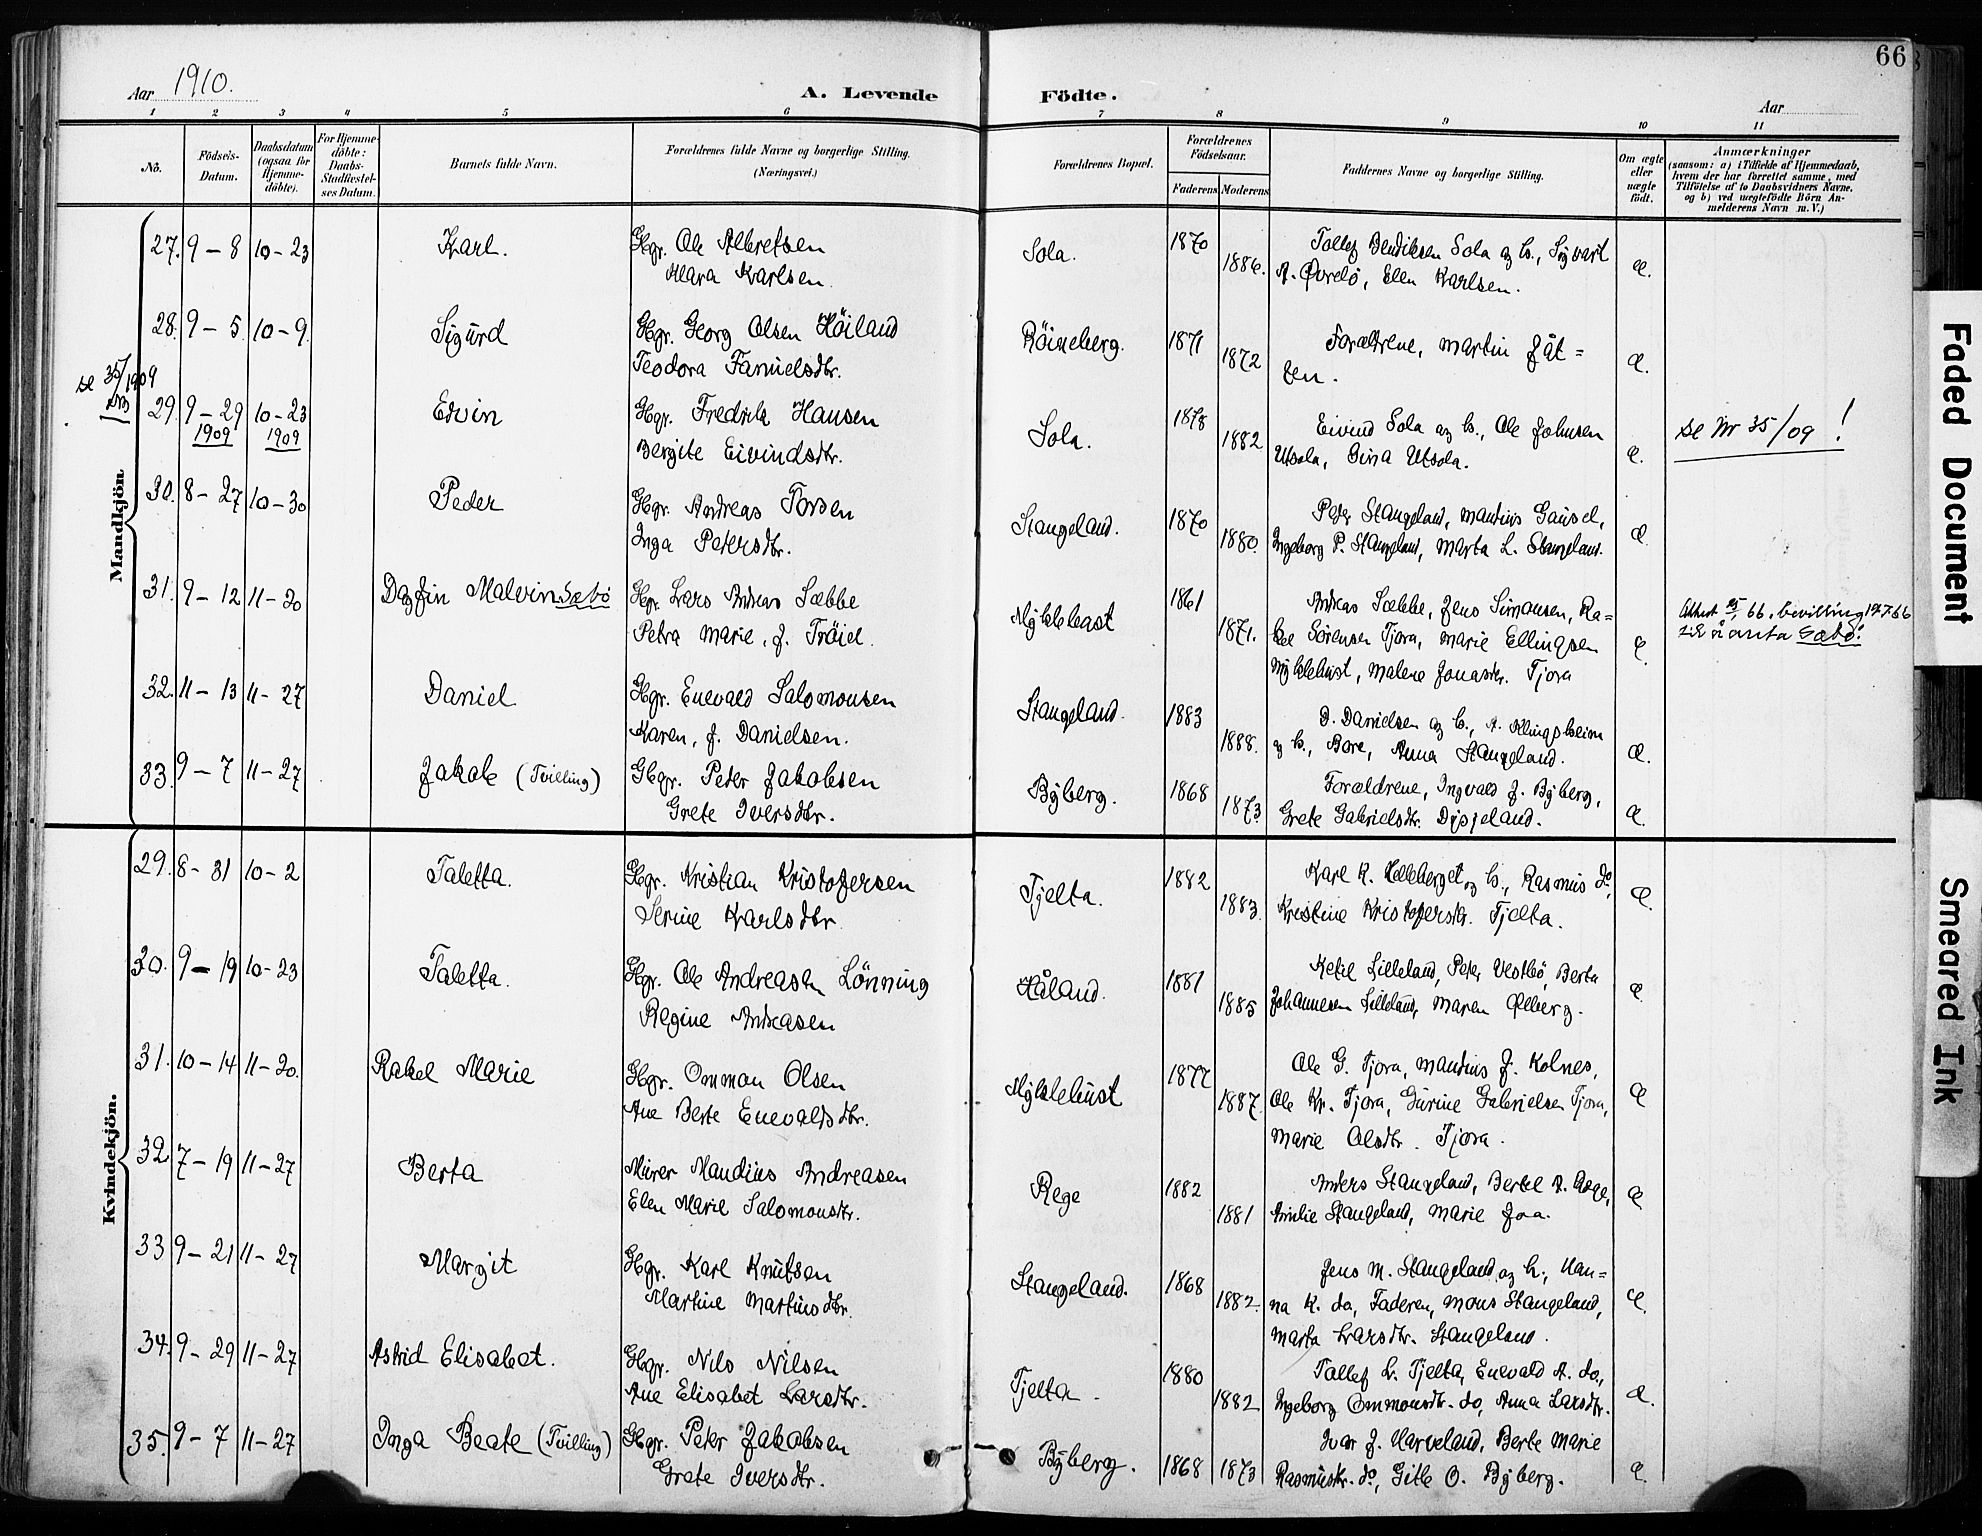 66
Aar 1910.
A. Levende Födte.
Aar
1 2 3 4 5 6 7 8 9 10 11
No.
Födsels-Datum.
Daabsdatum (ogsaa for Hjemme-döbte).
For Hjemme-döbte: Daabs-Stadfæstel-ses Datum.
Barnets fulde Navn.
Forældrenes fulde Navne og borgerlige Stilling.
(Næringsvei.)
Forældrenes Bopæl.
Forældrenes Födselsaar.
Faderens Moderens
Faddernes Navne og borgerlige Stilling.
Om ægte eller uægte födt.
Anmærkninger
(saasom: a) i Tilfælde af Hjemmedaab,
hvem der har forrettet samme, med
Tilföielse af to Daabsvidners Navne,
og b) ved uægtefödte Börn An-
melderens Navn m. V.)
Mandkjön.
27. 9-8 10-23 Karl. Gbgr. Ole Albretsen Sola. 1870 Tollef Bendiksen Sola og h., Sigvart
Mara Karlsen. 1886. A. Øvrebö, Elen Karlsen. Æ.
28. 9-5 10-9. Sigurd Gbgr. Georg Olsen Höiland Röineberg. 1871 Forældrene, Martin Jåt=
Teodora Tanielsdtr. 1872 ten. Æ.
se 35/1909
29. 9-29 10-23 Edvin Gbgr. Fredrik Hansen Sola. 1878 Eivind Sola og h., Ole Johnsen se Nr 35/09!
1909 1909 Bergite Eivindsdtr. 1882 Utsola, Gina Utsola. Æ.
30. 8-27 10-30 Peder Gbgr. Andreas Torsen Stangeland. 1870 Peder Stangeland, Maudius Gausel,
Inga Petersdtr. 1880. Ingeborg P. Stangeland, Marta L. Stangeland. Æ.
31. 9-12 11-20 Dagfin Malvin Sæbø Gbgr. Lars Andreas Sæbbe Myklebust 1861 Andreas Sæbbe, Jens Simonsen, Ra= Attest 66. bevilling 17.7.66
Petra Marie, f. Tröiel. 1871. kel Sörensen Tjora, Marie Ellingsen Æ. til å anta Sæbø.
Myklebust, Malene Jonasdtr. Tjora
32. 11-13 11-27 Daniel Gbgr. Enevald Salomonsen Stangeland. 1883 D. Danielsen og h., A. Ollingsheim
Karen, f. Danielsen. 1888. og h., Bore, Anna Stangeland. Æ.
33. 9-7 11-27 Jakob (Tvilling) Gbgr. Peter Jakobsen Byberg. 1868 Forældrene, Ingvald J. Byberg,
Grete Iversdtr. 1873 Grete Gabrielsdtr. Dysjeland. Æ.
Kvindekjön.
29. 8-31 10-2 Taletta. Gbgr. Kristian Kristofersen Tjelta. 1882 Karl K. Helleberget og h., Rasmus do,
Serine Karlsdtr. 1883. Kristine Kristofersdtr. Tjelta. Æ.
30. 9-19 10-23 Taletta. Gbgr. Ole Andreasen Lönning Håland. 1881 Ketil Lilleland, Peter Vestbö, Berta
Regine Andreasen 1885 Johannesen Lilleland, Maren Ølberg. Æ.
31. 10-14 11-20. Rakel Marie Gbgr. Ommon Olsen Myklebust 1877 Ole G. Tjora, Maudius J. Kolnes,
Ane Berte Enevaldsdtr. 1887. Ole Kr. Tjora, Gurine Gabrielsen Tjora, Æ
Marie Olsdtr. Tjora.
32 7-19 11-27 Berta Murer Maudius Andreasen Rege 1882 Anders Stangeland, Bertel A. Rege,
Elen Marie Salomonsdtr. 1881 Amalie Stangeland, Marie Joa. Æ
33 9-21 11-27 Margit Gbgr. Karl Knutsen Stangeland. 1868 Jens M. Stangeland og h., Han=
Martine Martinsdtr. 1882. na K. do, Faderen, Mons Stangeland, Æ.
Marta Larsdtr. Stangeland.
34. 9-29 11-27 Astrid Elisabet. Gbgr. Nils Nilsen Tjelta. 1880 Tollef L. Tjelta, Enevald A. do,
Ane Elisabet Larsdtr. 1882 Ingeborg Ommonsdtr. do, Anna Larsdtr. Æ.
35. 9-7 11-27 Inga Beate (Tvilling) Gbgr. Peter Jakobsen Byberg. Ivar J. Harveland, Berte Marie
Grete Iversdtr. 1868 1873 Rasmusdtr. do, Gitle O. Byberg. Æ.
Faded Document
Smeared Ink